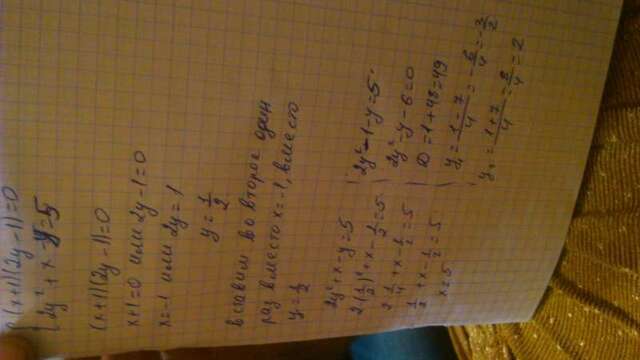 (x+1)(2y-1)=0
2y²+x-y=5
(x+1)(2y-1)=0
x+1=0 или 2y-1=0
x=-1 или 2y=1
y=1/2
вставим во второе один
раз вместо x=-1, вместо
y=1/2
2y²+x-y=5
2(1/2)²+x-1/2=5
2·1/4+x-1/2=5
1/2+x-1/2=5
x=5
2y²-1-y=5
2y²-y-6=0
D=1+48=49
y₁=(1-7)/4=-6/4=-3/2
y₂=(1+7)/4=8/4=2